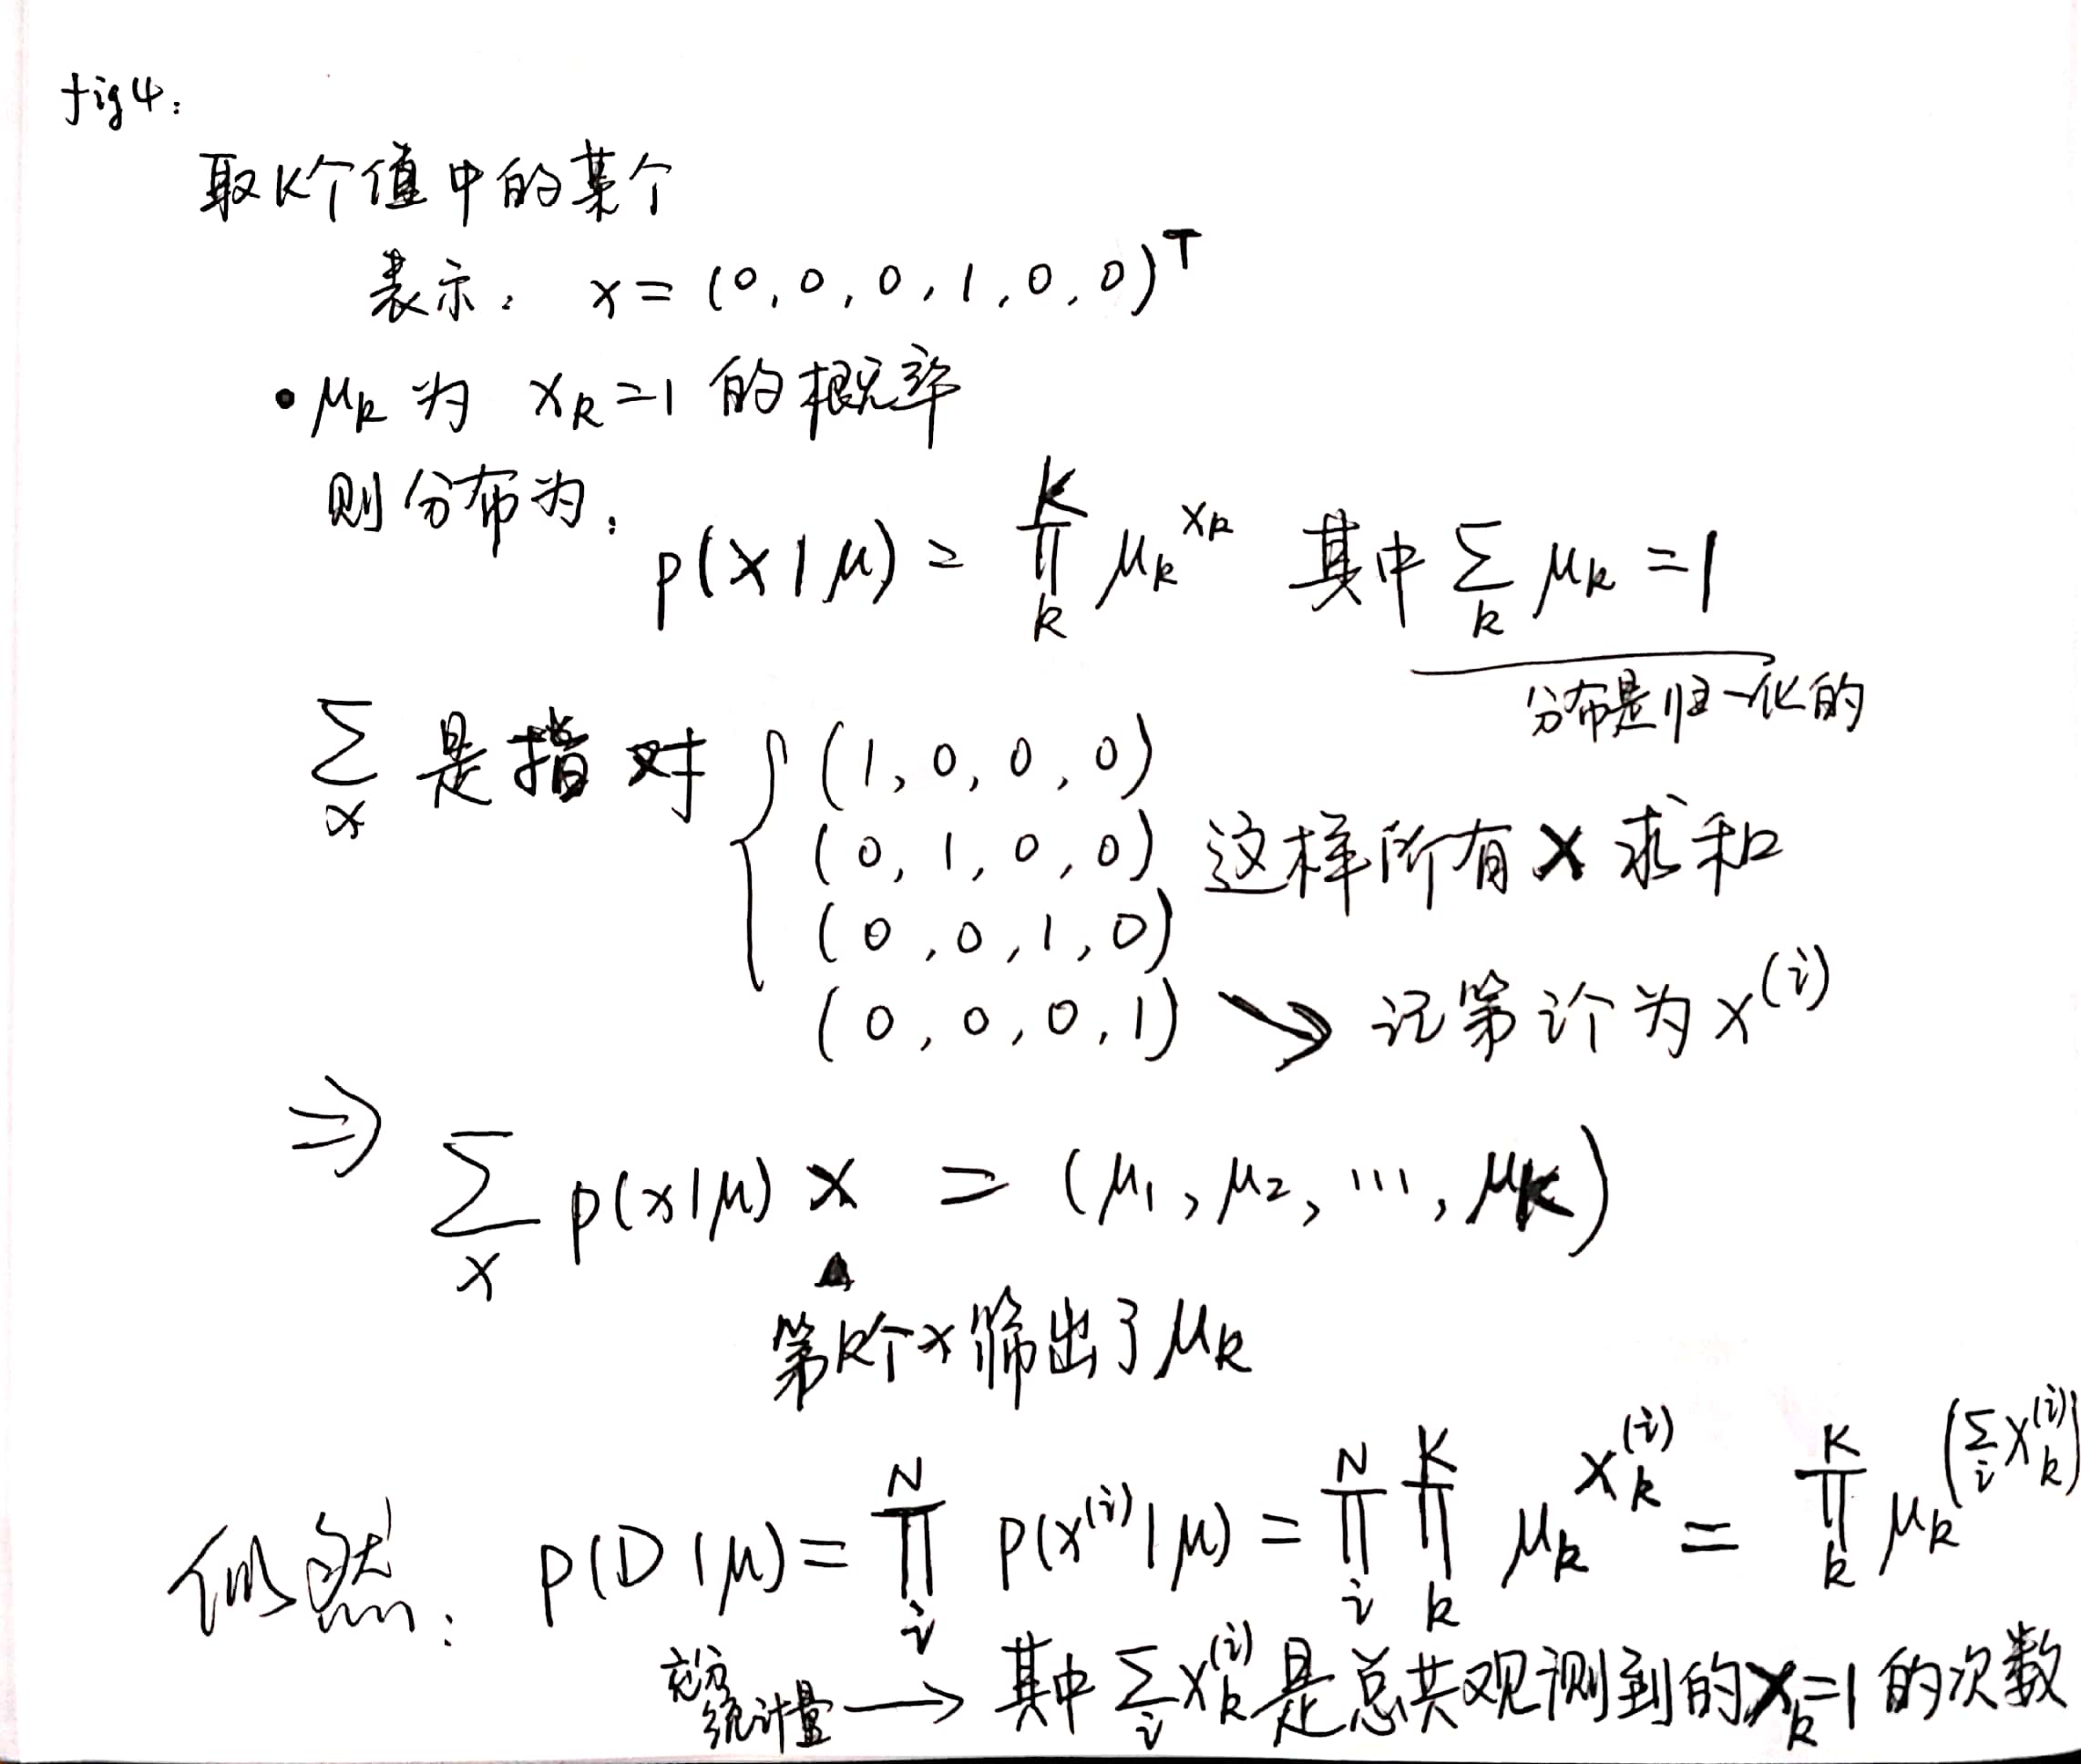 fig4:
取K个值中的某个
表示: x = (0, 0, 0, 1, 0, 0)ᵀ
• μₖ 为 xₖ=1 的概率
则分布为:
p(x|μ) = ∏ₖᴷ μₖ^{xₖ} 其中 ∑ₖ μₖ = 1
分布是归一化的
∑ₓ 是指对 { (1, 0, 0, 0)
(0, 1, 0, 0) 这样所有 x 求和
(0, 0, 1, 0)
(0, 0, 0, 1) ↘ 记第i个为 x^{(i)}
⇒ ∑ₓ p(x|μ) x = (μ₁, μ₂, ..., μ_K)
第k个x筛出了μₖ
似然: p(D|μ) = ∏ᵢᴺ p(x^{(i)}|μ) = ∏ᵢᴺ ∏ₖᴷ μₖ^{xₖ^{(i)}} = ∏ₖᴷ μₖ^{(∑ᵢ xₖ^{(i)})}
充分统计量 → 其中 ∑ᵢ xₖ^{(i)} 是总共观测到的 xₖ=1 的次数